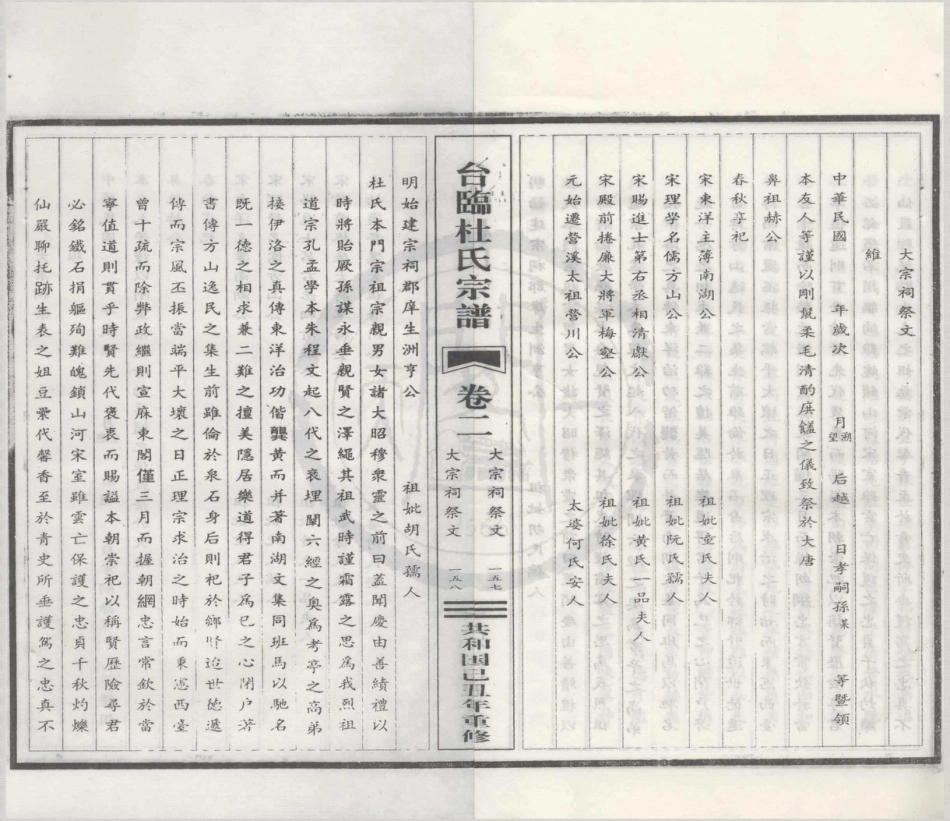 大宗祠祭文
維
中華民國 年歲次 月朔望 后越 日孝嗣孫某 等暨領
本友人等謹以剛鬣柔毛清酌庶饈之儀致祭於大唐
鼻祖赫公
春秋享祀
宋東洋主薄南湖公 祖妣童氏夫人
宋理學名儒方山公 祖妣阮氏孺人
宋賜進士第右丞相清獻公 祖妣黃氏一品夫人
宋殿前捲廉大將軍梅壑公 祖妣徐氏夫人
元始遷營溪太祖營川公 太婆何氏安人
台臨杜氏宗譜 卷二
大宗祠祭文 一五七
大宗祠祭文 一五八
共和国己丑年重修
明始建宗祠郡庠生洲亨公 祖妣胡氏孺人
杜氏本門宗祖宗觀男女諸大昭穆衆靈之前曰蓋聞慶由善績禮以
時將貽厥孫謀永垂觀賢之澤繩其祖武時謹霜露之思爲我烈祖
道宗孔孟學本朱程文起八代之衰埋闡六經之奥爲考亭之高弟
接伊洛之真傳東洋治功偕龔黃而并著南湖文集同班馬以馳名
既一德之相求兼二難之擅美隱居樂道得君子爲已之心閉户著
書傳方山逸民之集生前雖倫於泉石身后則祀於鄉賢迨世德遞
傳而宗風丕振當端平大壞之日正理宗求治之時始而秉憲西臺
曾十疏而除弊政繼則宣麻東閣僅三月而握朝綱忠言常欽於當
寧值道則貫乎時賢先代褒衷而賜謚本朝崇祀以稱賢歷險尋君
必銘鐵石捐軀殉難魄鎖山河宋室雖雲亡保護之忠貞千秋灼爍
仙嚴聊托跡生表之姐豆纍代馨香至於青史所垂護駕之忠真不